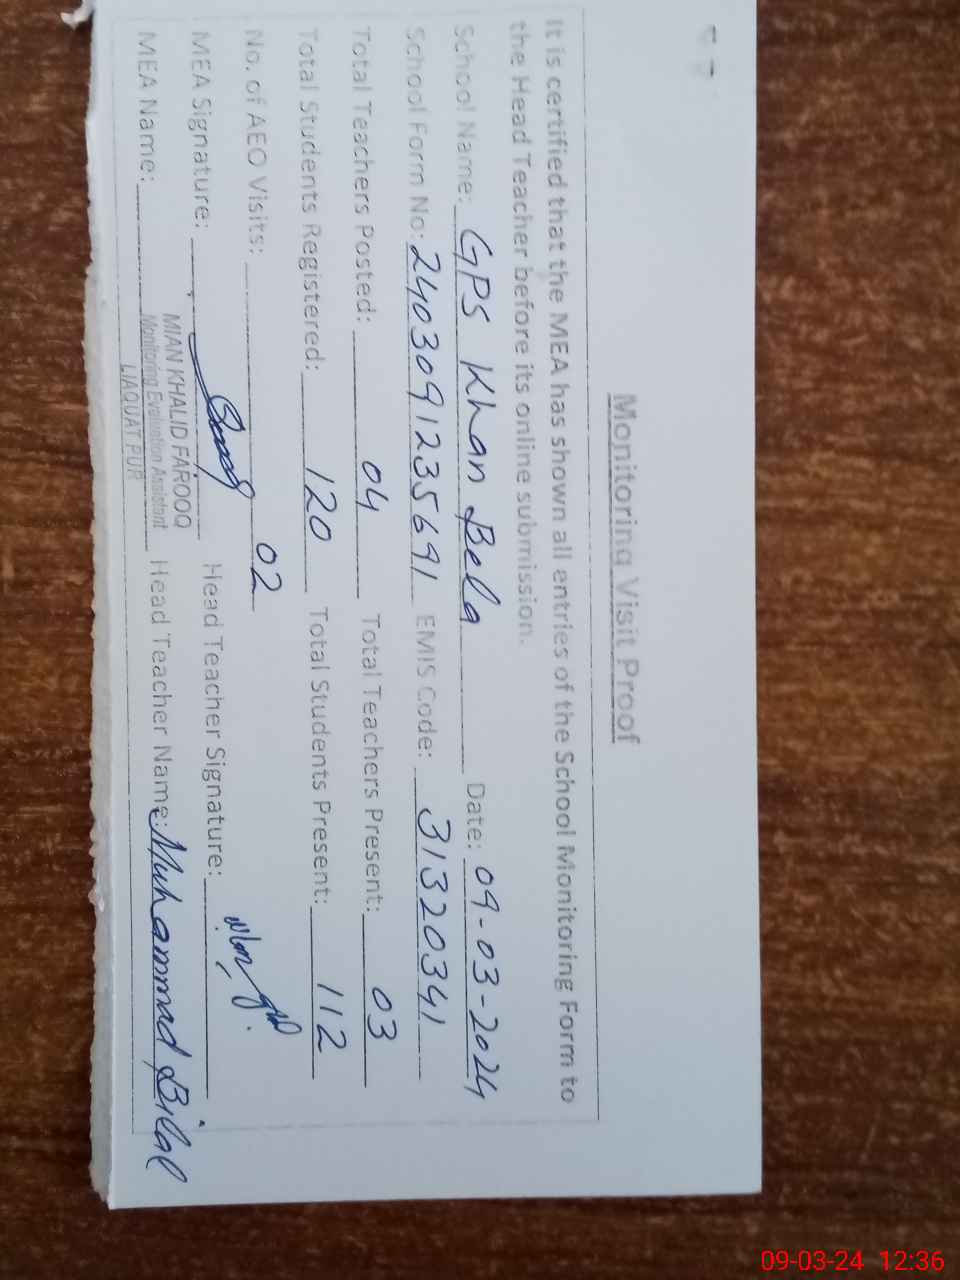 Monitoring Visit Proof
It is certified that the MEA has shown all entries of the School Monitoring Form to
the Head Teacher before its online submission.
School Name: GPS Khan Bela Date: 09-03-2024
School Form No: 2403091235691 EMIS Code: 31320341
Total Teachers Posted: 04 Total Teachers Present: 03
Total Students Registered: 120 Total Students Present: 112
No. of AEO Visits: 02
MEA Signature: Head Teacher Signature:
MIAN KHALID FAROOQ
MEA Name: Monitoring Evaluation Assistant Head Teacher Name: Muhammad Bilal
LIAQUAT PUR
09-03-24 12:36